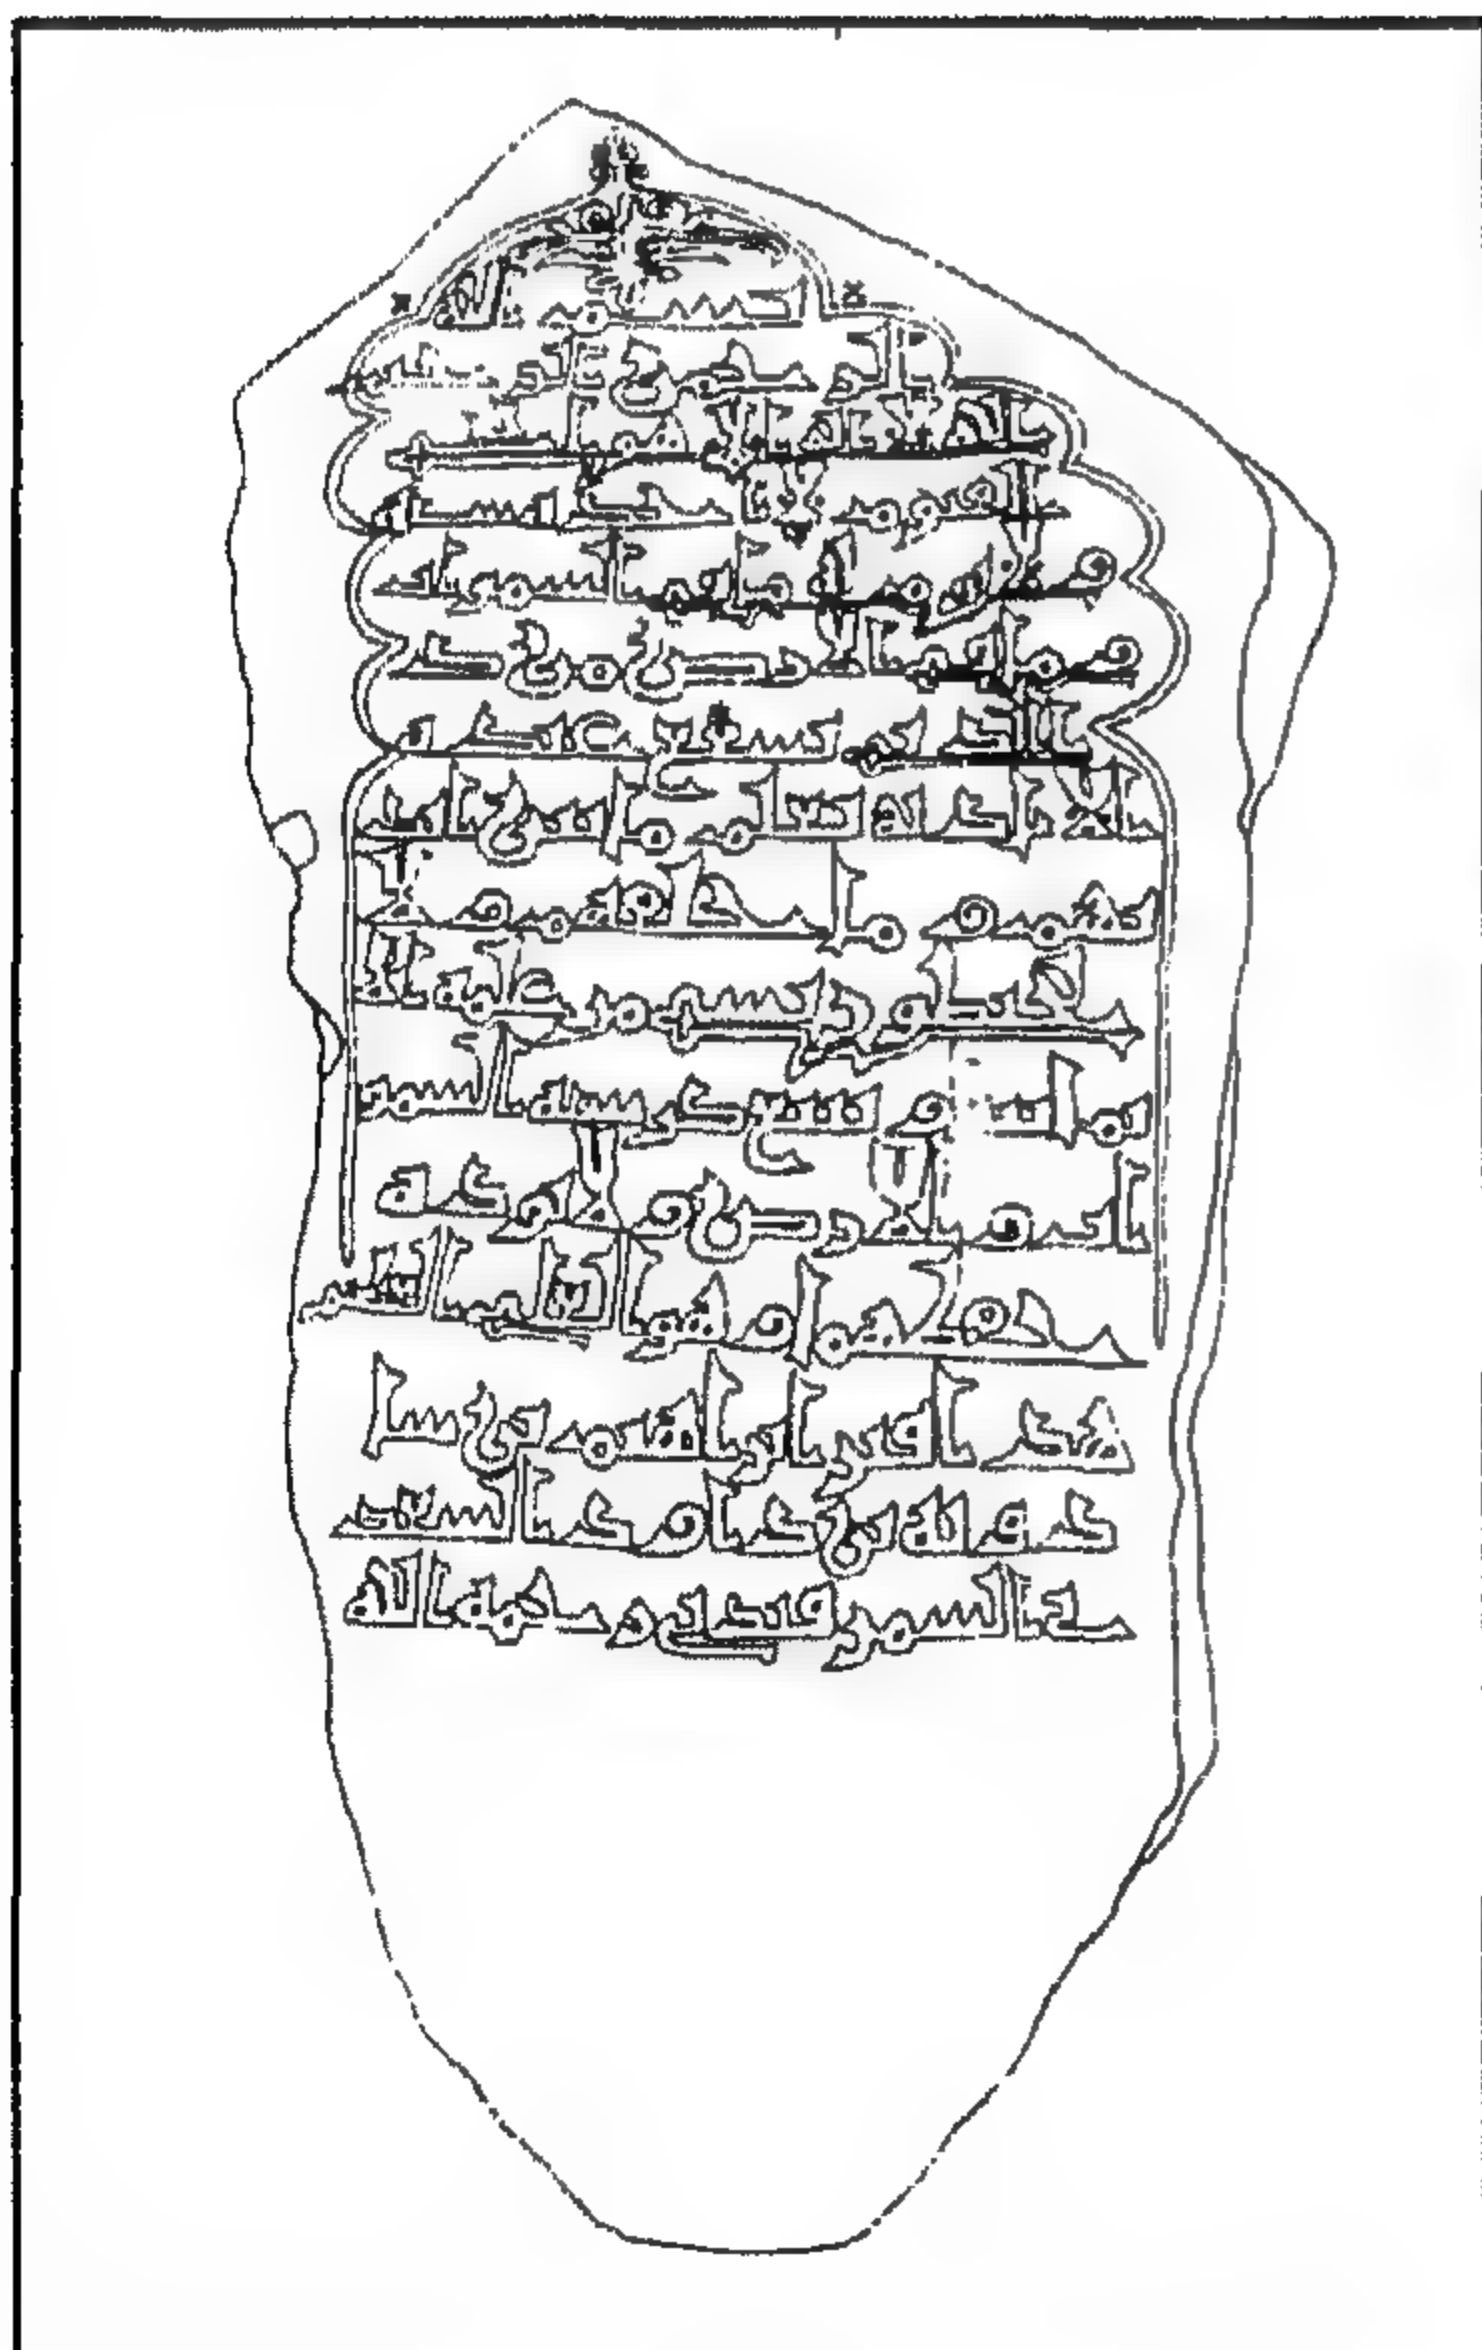 بسم الله
الرحمن الرحيم
الله لا اله الا هو الحي
القيوم لا تاخذه سنة
ولا نوم له ما في السموات
وما في الارض من ذ
ا الذي يشفع عنده
الا باذنه يعلم ما بين ايد
يهم وما خلفهم ولا
يحيطون بشي من علمه الا
بما شا وسع كرسيه السمو
ات والارض ولا يوده
حفظهما وهو العلي العظيم
هذا قبر ابراهيم بن
بن
السمرقندي رحمه الله